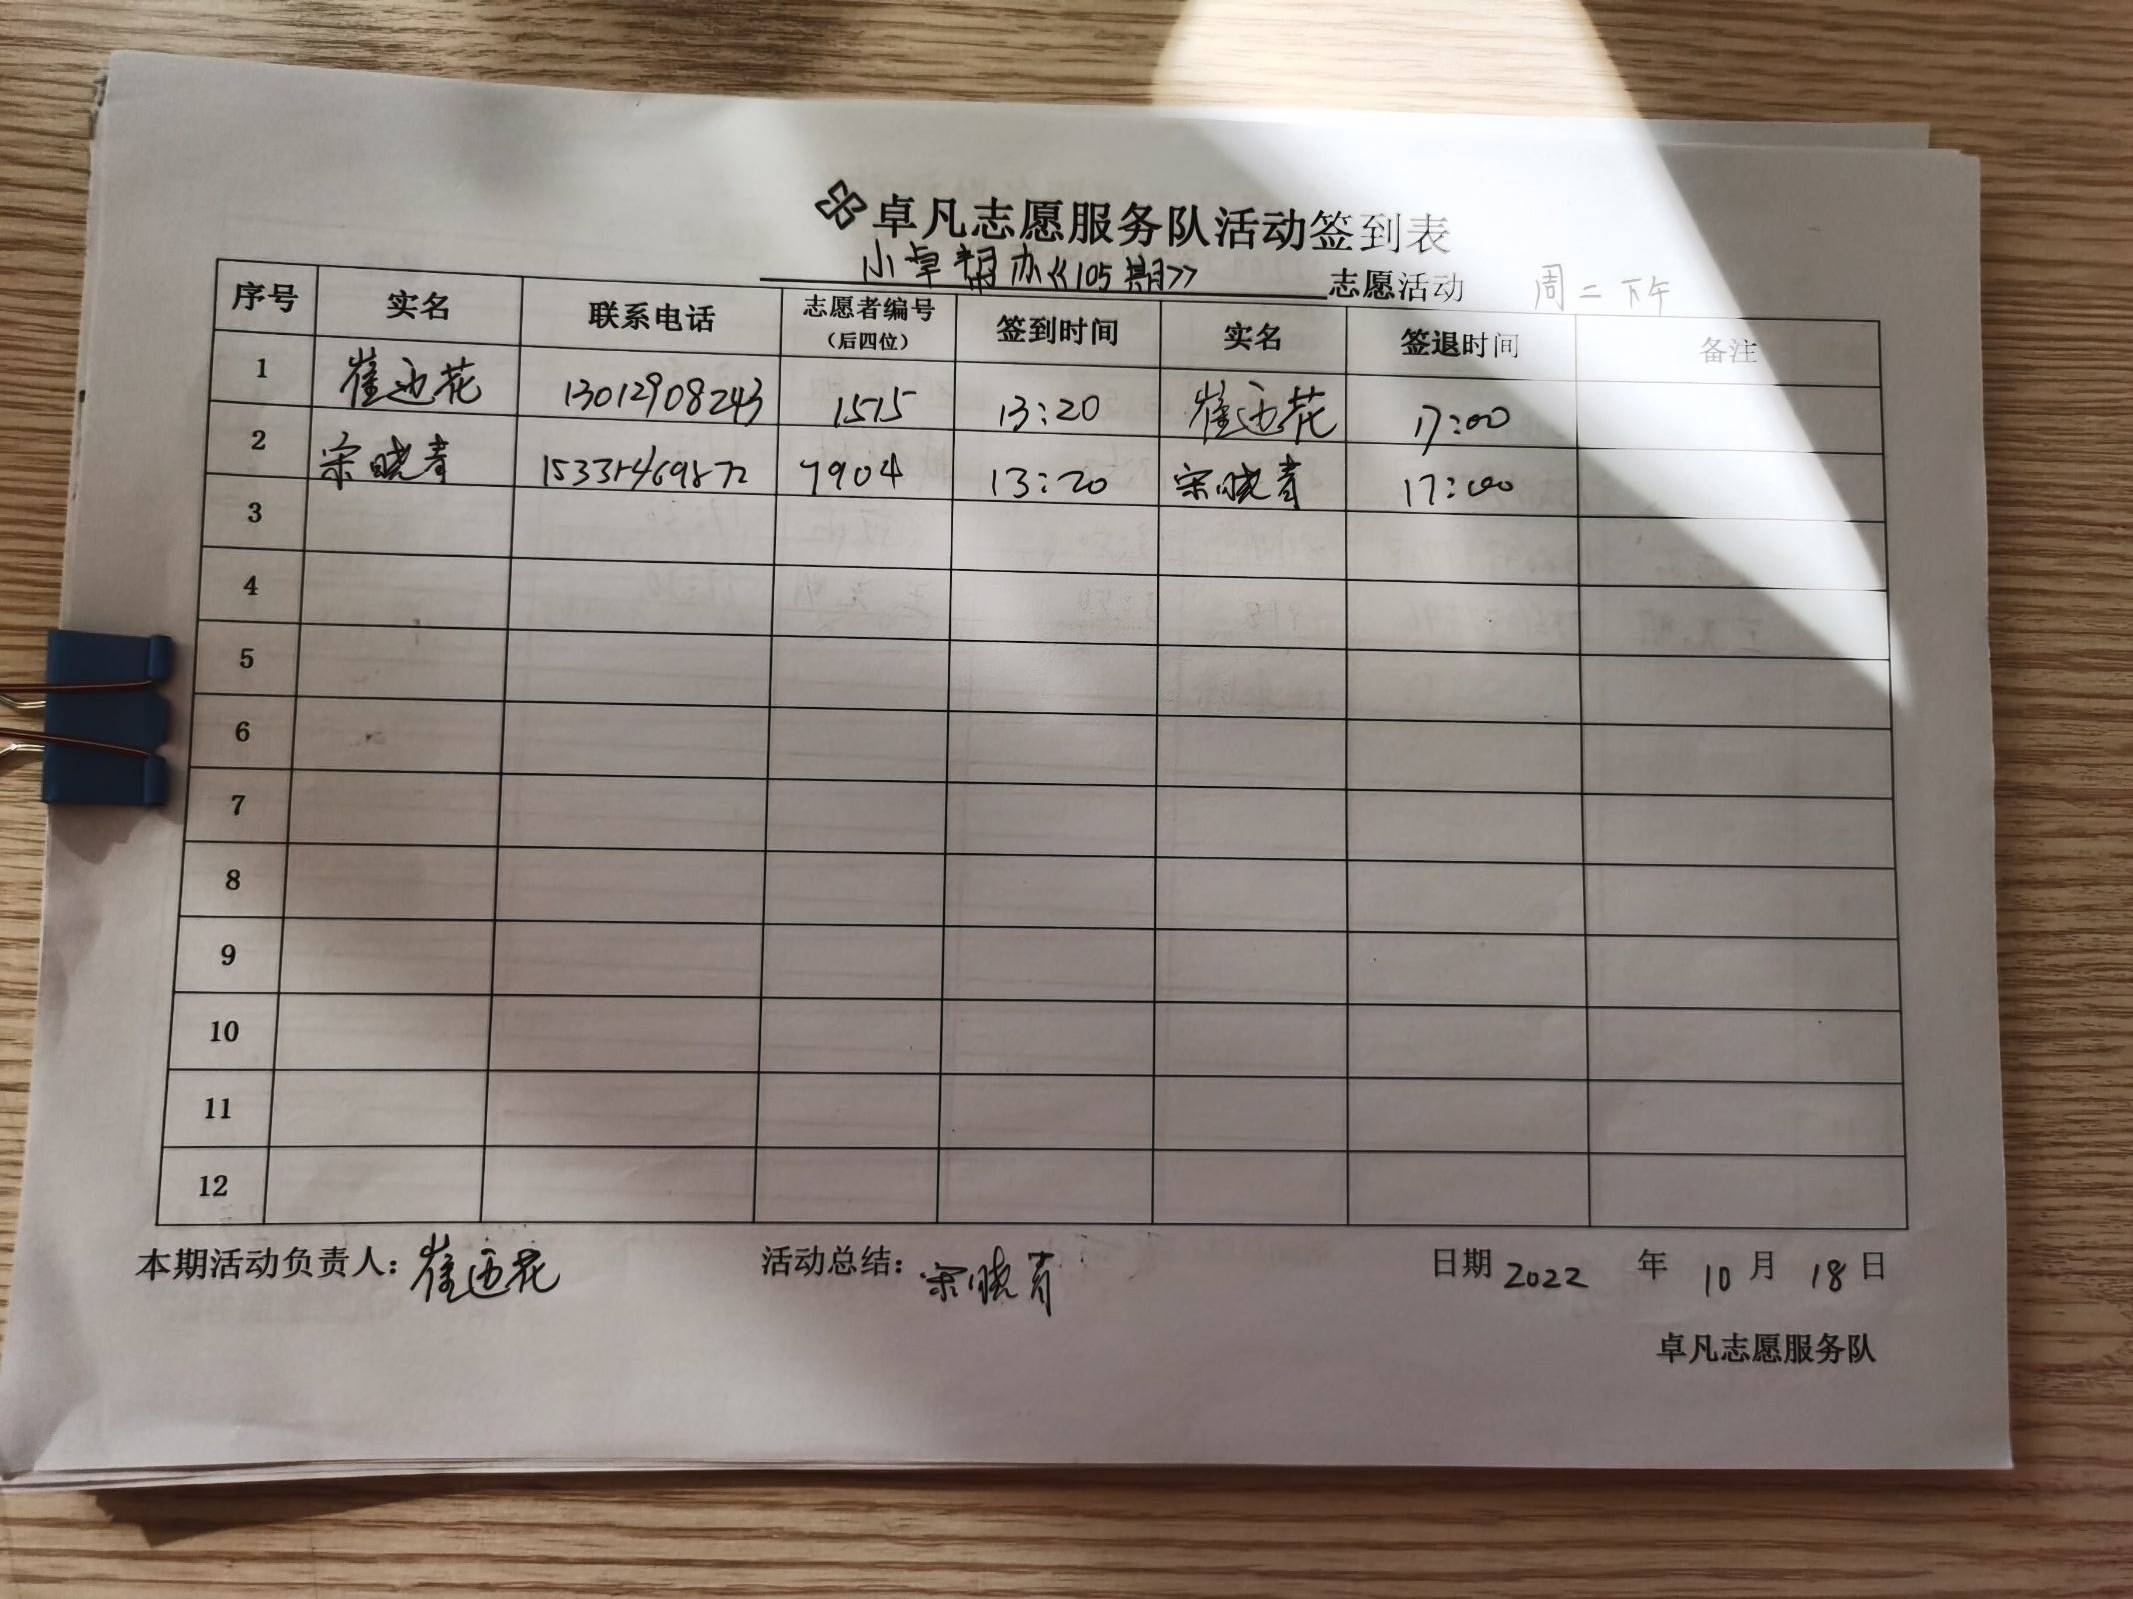 卓凡志愿服务队活动签到表
小卓帮办《105期》 志愿活动 周二下午
序号 实名 联系电话 志愿者编号（后四位） 签到时间 实名 签退时间 备注
1 崔迎花 13012908243 1515 13:20 崔迎花 17:00
2 宋晓青 7904 13:20 宋晓青 17:00
3
4
5
6
7
8
9
10
11
12
本期活动负责人：崔迎花 活动总结：宋晓青 日期 2022 年 10 月 18 日
卓凡志愿服务队